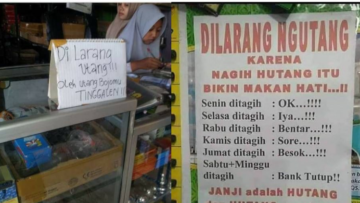 Di Larang
Utang!!!
Oleh utang Bojomu
TINGGALEN!!
DILARANG NGUTANG
KARENA
NAGIH HUTANG ITU
BIKIN MAKAN HATI...!!
Senin ditagih : OK...!!!!
Selasa ditagih : Iya...!!!!
Rabu ditagih : Bentar...!!!!
Kamis ditagih : Sore...!!!!
Jumat ditagih : Besok...!!!!
Sabtu+Minggu
ditagih : Bank Tutup!!
JANJI adalah HUTANG